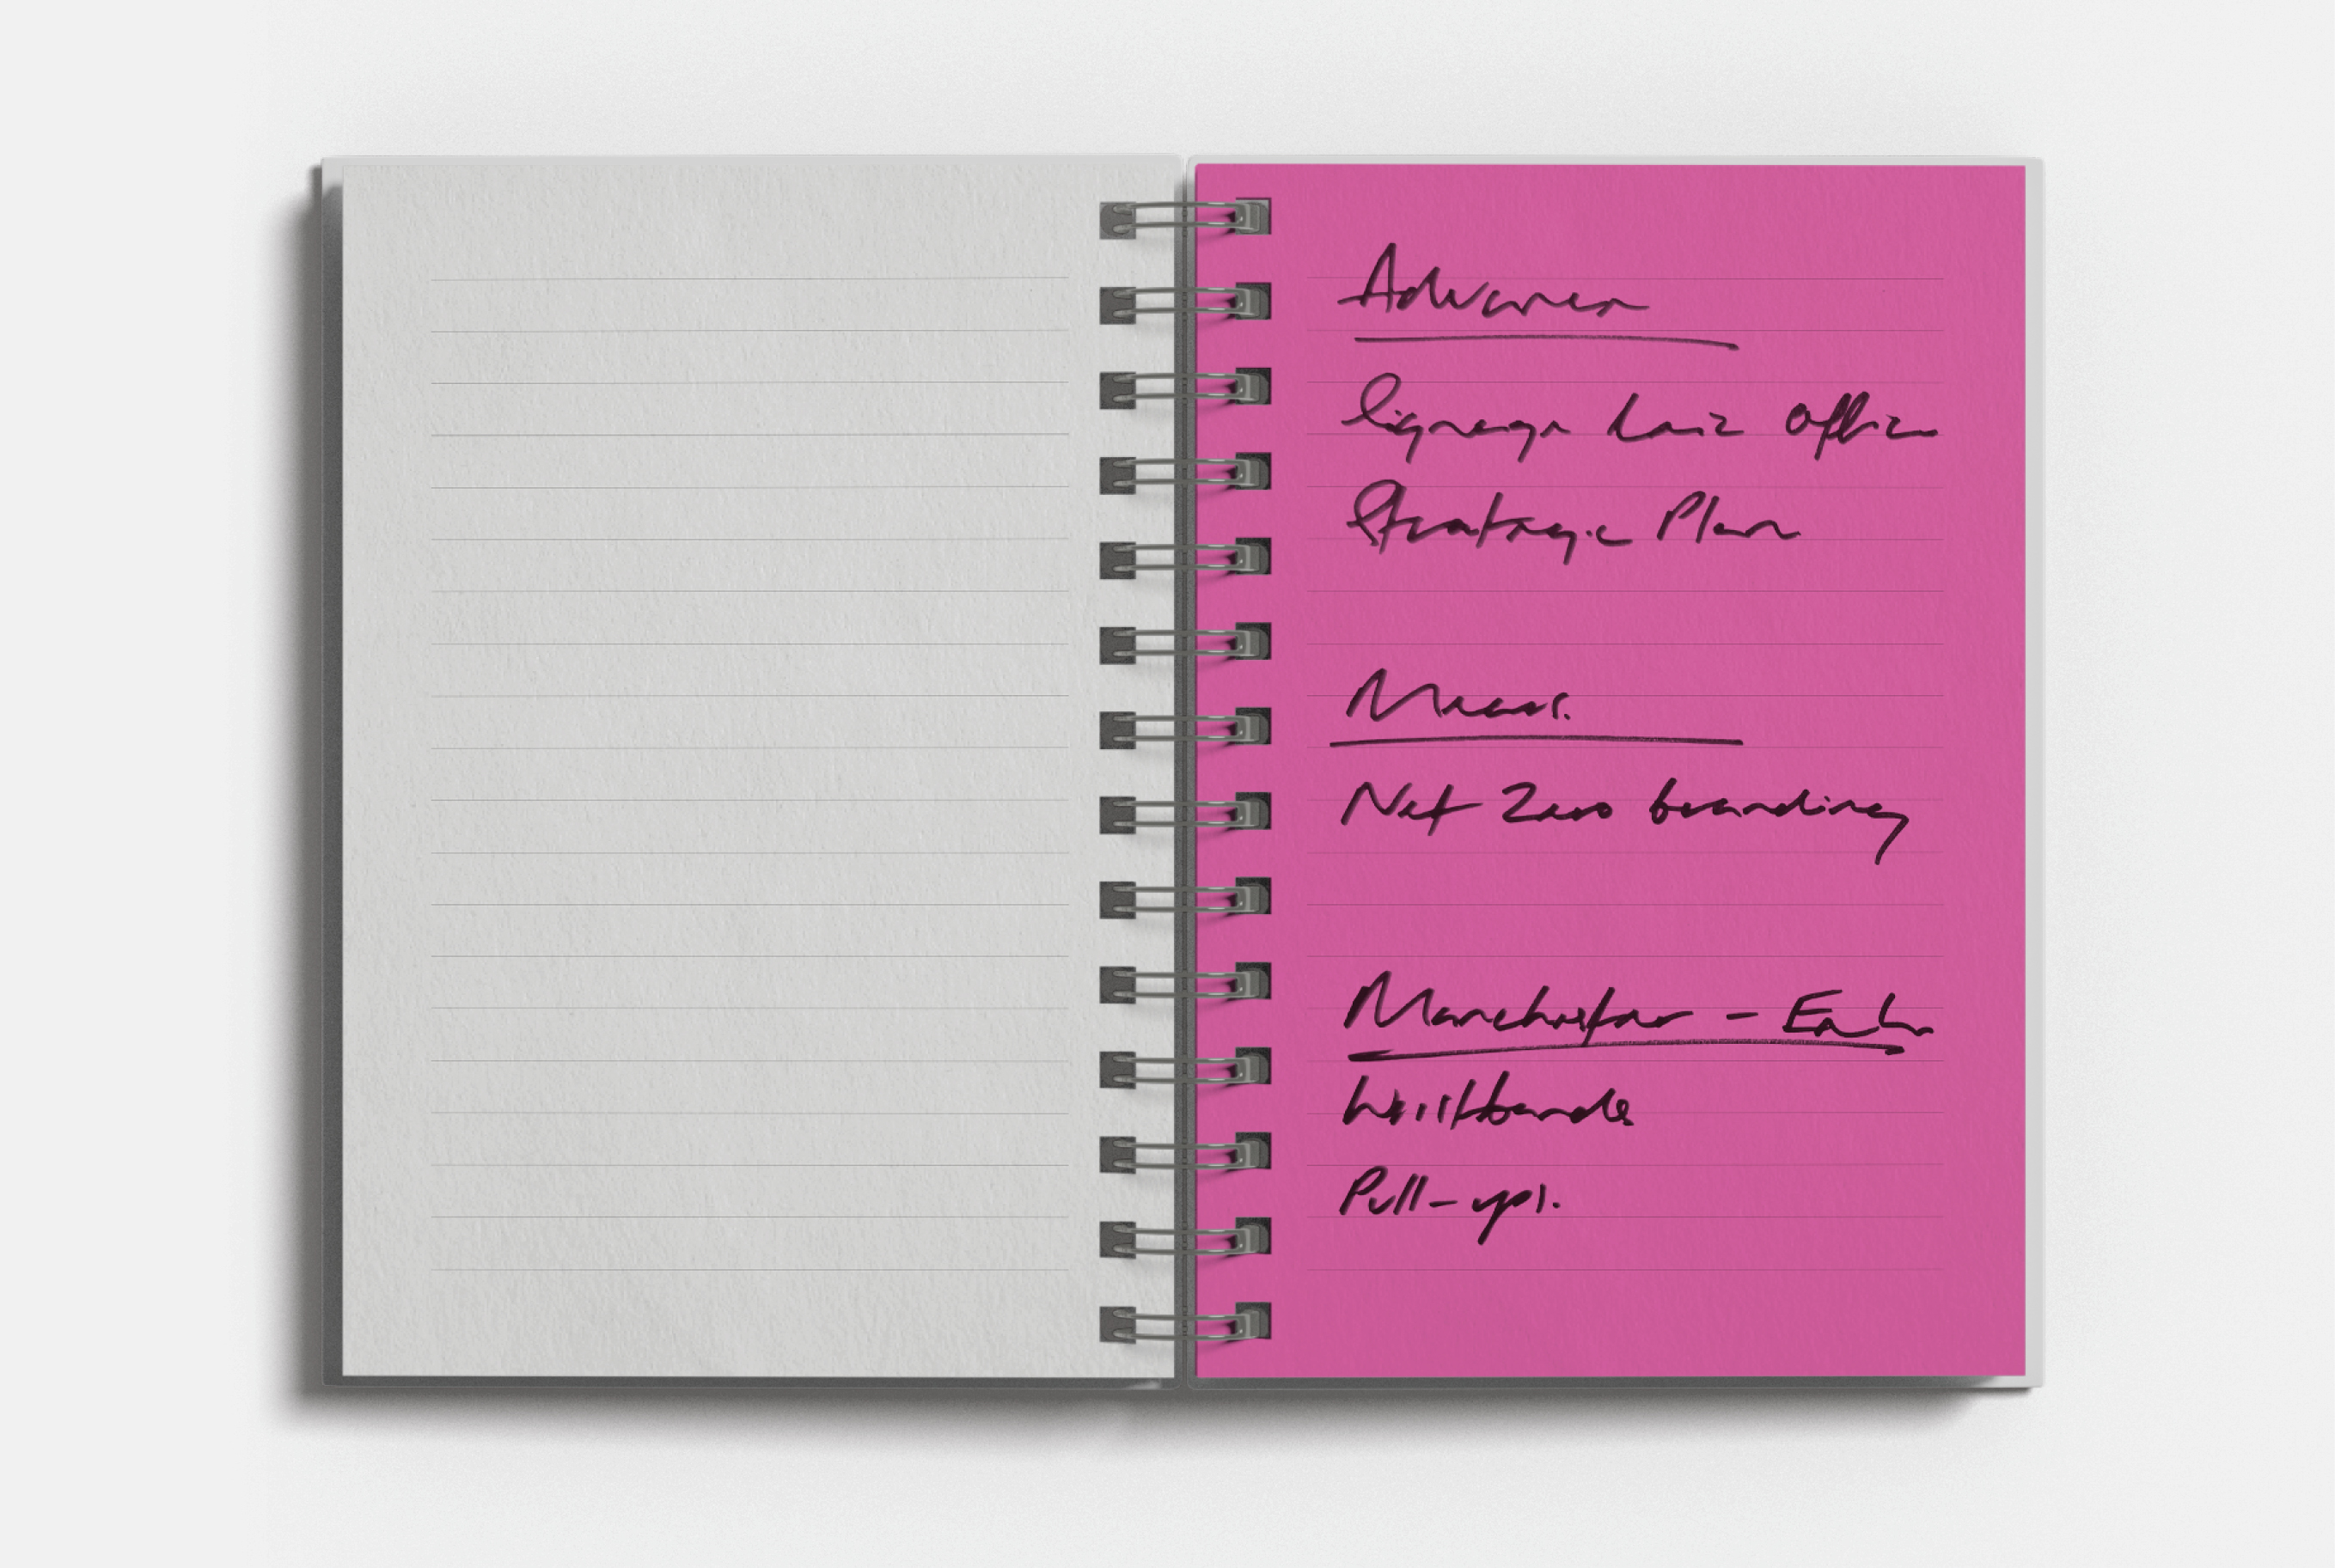 Advance
Signage Office
Strategic Plan
Net Zero branding
Manchester -
Wristbands
Pull-ups.